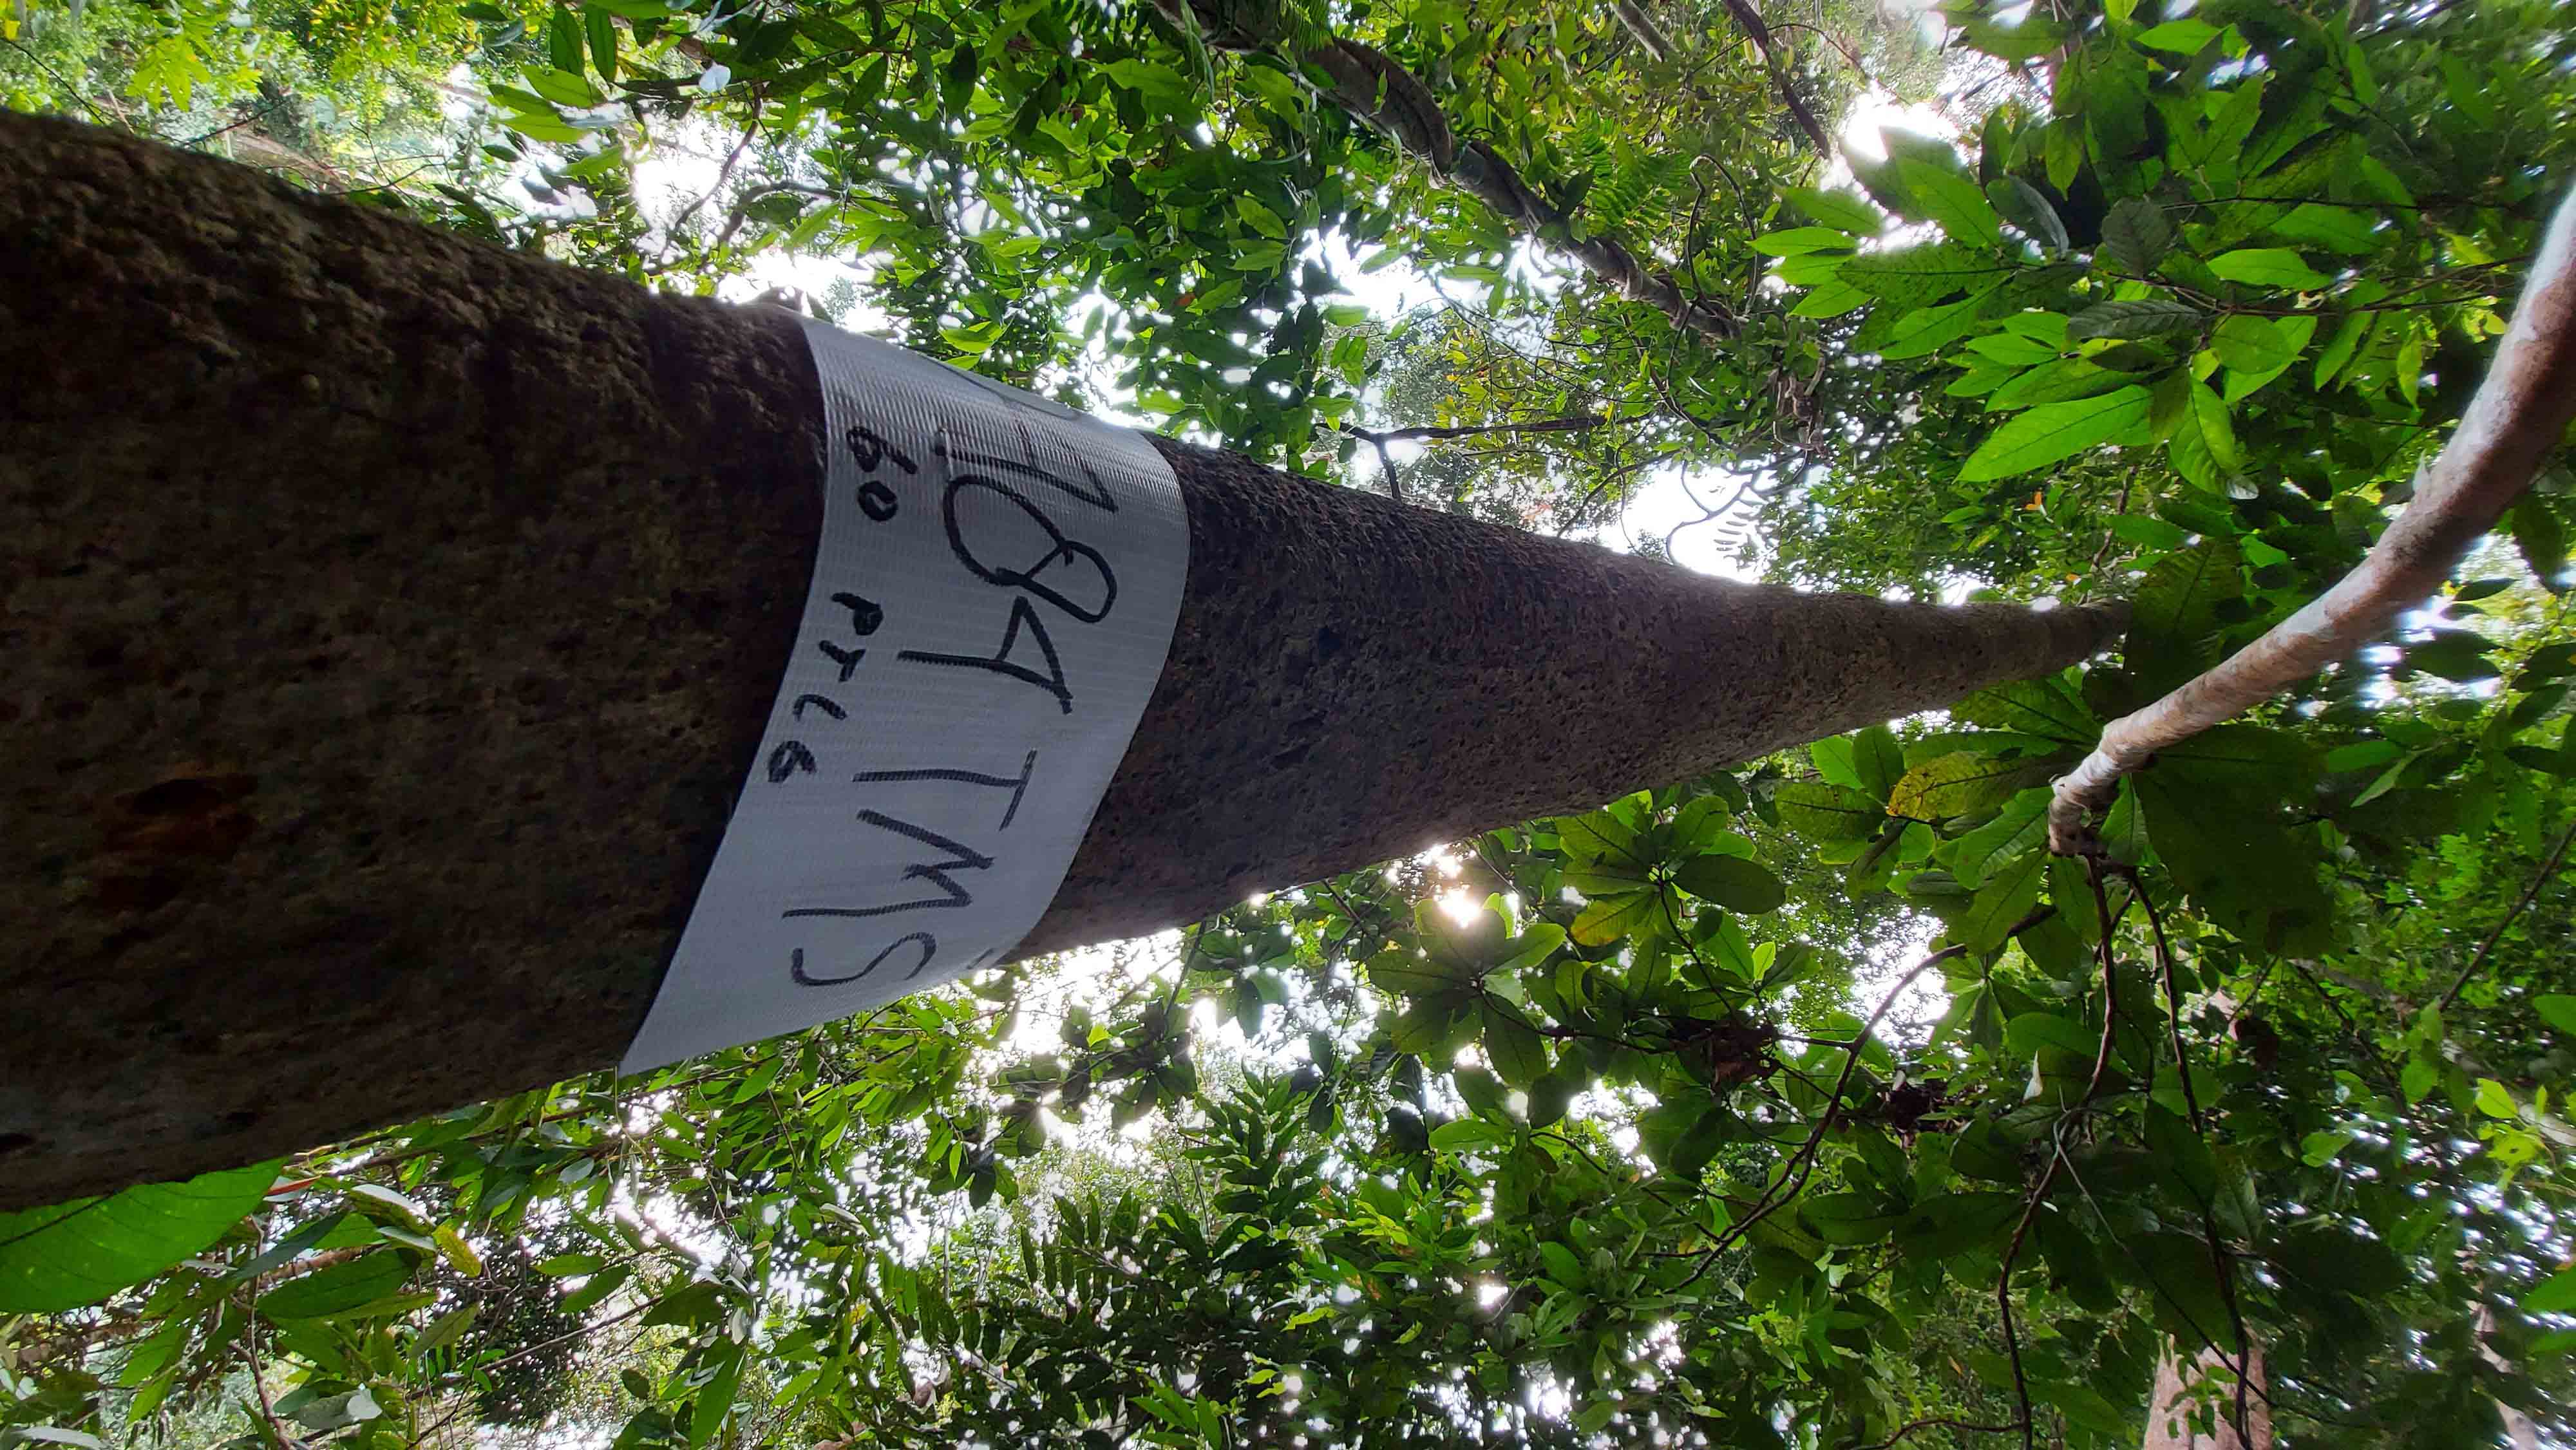 184 TMS
60 PTLG